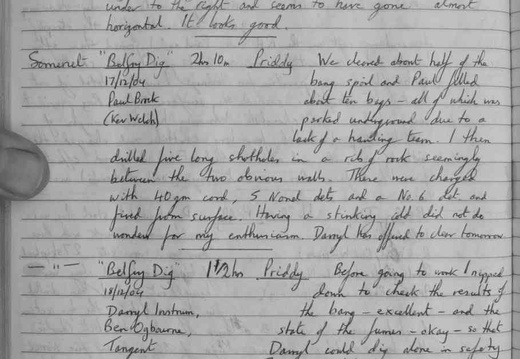 under to the right and seems to have gone almost
horizontal. It looks good.
Somerset "Belfry Dig" 2hrs 10m Priddy We cleared about half of the
17/12/04 bang spoil and Paul filled
Paul Brock about ten bags - all of which was
(Kev Welsh) parked underground due to a
lack of a hauling team. I then
drilled five long shotholes in a rib of rock seemingly
between the two obvious walls. These were charged
with 40gm cord, 5 Nonel dets and a No. 6 det. and
fired from surface. Having a stinking cold did not do
wonders for my enthusiasm. Darryl has offered to clear tomorrow.
— " — "Belfry Dig" 1 1/2 hrs Priddy Before going to work I nipped
18/12/04 down to check the results of
Darryl Instrum, the bang - excellent - and the
Ben Ogbourne, state of the fumes - okay - so that
Tangent Darryl could dig alone in safety